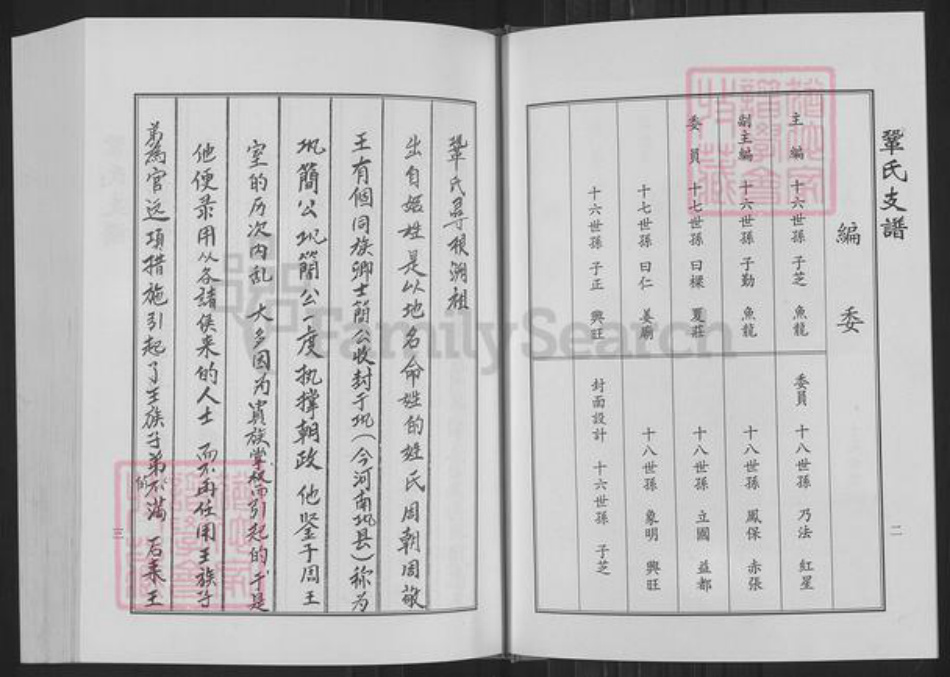 鞏氏支譜
編委
主編 十六世孫 子芝 魚龍
副主編 十六世孫 子勤 魚龍
委員 十七世孫 曰樑 夏莊
十七世孫 曰仁 姜廟
十六世孫 子正 興旺
委員 十八世孫 乃法 紅星
十八世孫 鳳保 赤張
十八世孫 立國 益都
十八世孫 象明 興旺
封面設計 十六世孫 子芝
二
鞏氏尋根溯祖
出自姬姓是以地名命姓的姓氏周朝周敬
王有個同族卿士簡公收封于巩(今河南巩县)称为
巩簡公巩簡公一度执撑朝政 他鉴于周王
室的历次内乱 大多因为貴族掌权而引起的于是
他便录用从各諸侯来的人士 而不再任用王族子
弟為官这項措施引起了王族子弟的不满 后来王
三
FamilySearch